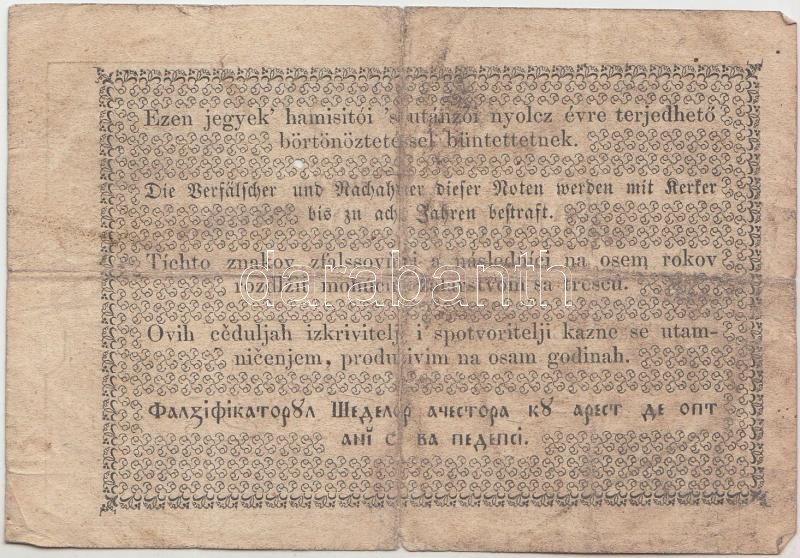 Ezen jegyek' hamisitói 's utánzói nyolcz évre terjedhető
börtönöztetéssel büntettetnek.
Die Verfälscher und Nachahmer dieser Noten werden mit Kerker
bis zu acht Jahren bestraft.
Tíchto znakov zfalssovňíci a následňíci na osem rokov
rozdlžiť mohúcím žalárstvom sa trescú.
darabanth
Ovih cěduljah izkrivitelji i spotvoritelji kazne se utam-
ničenjem, produživim na osam godinah.
Фалꙁіфікаторꙋл Шеделор ачестора кꙋ арест де опт
анї с ва педепсі.